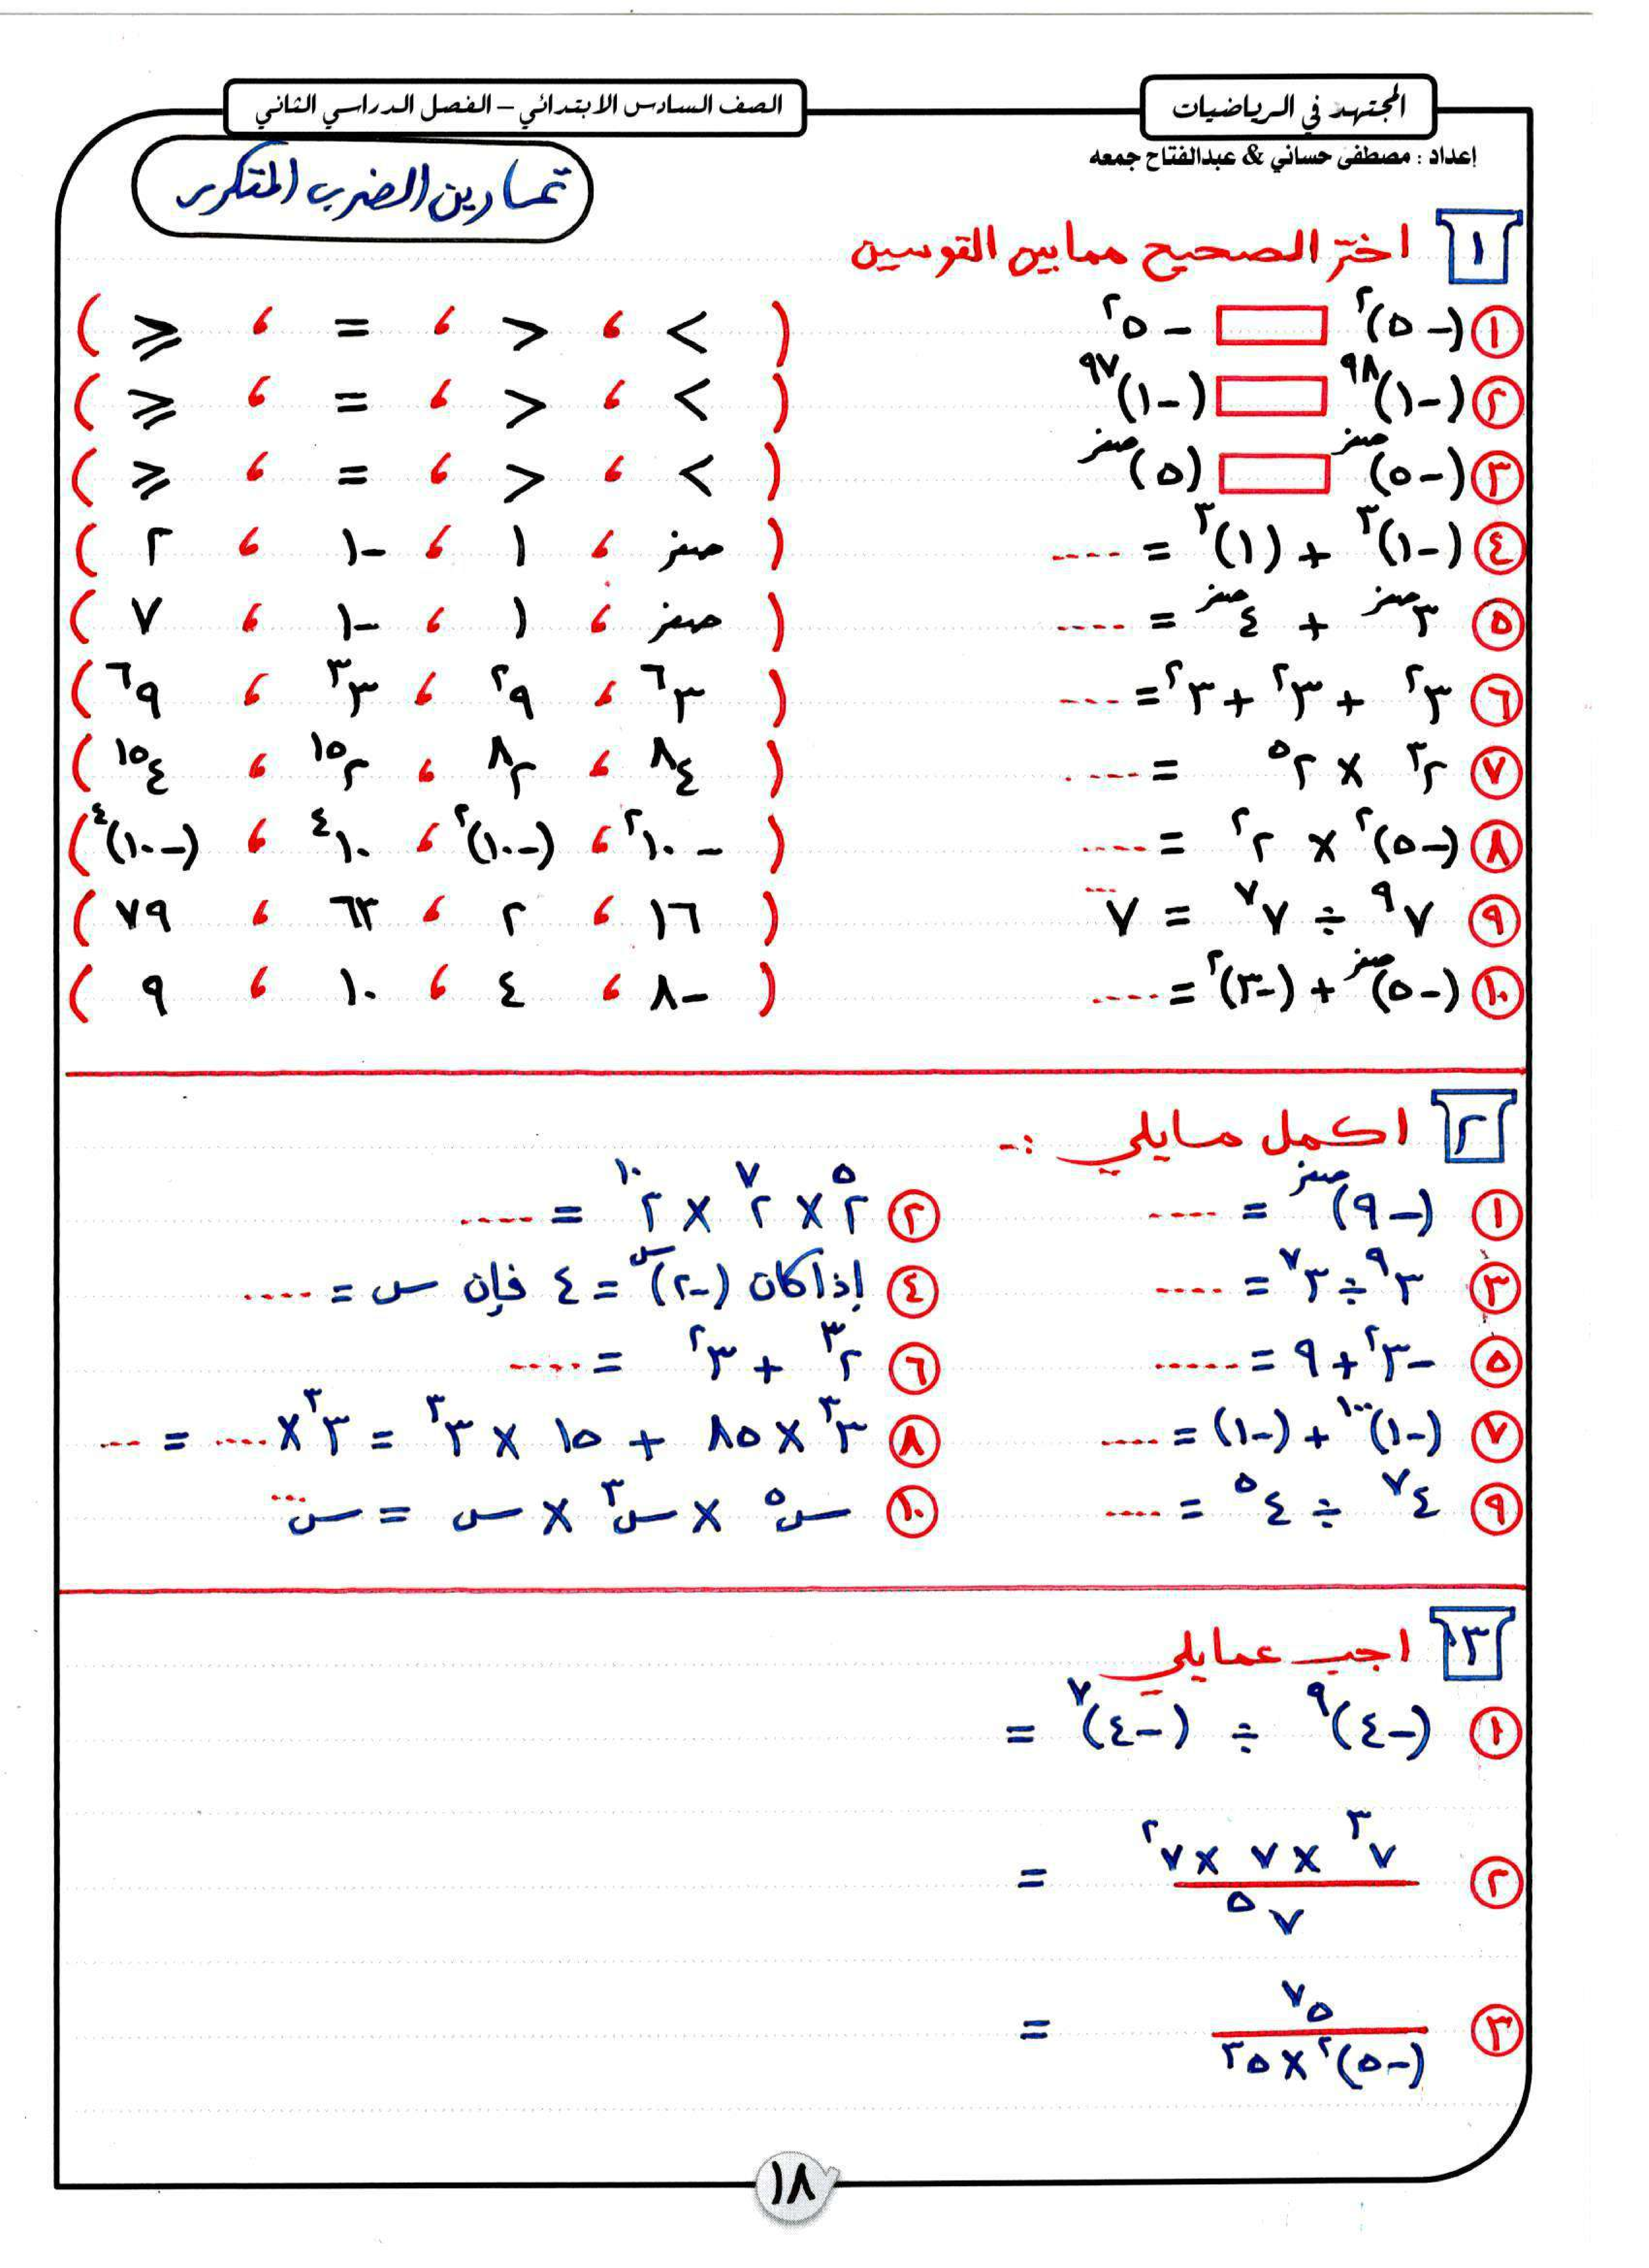 المجتهد في الرياضيات
الصف السادس الابتدائي – الفصل الدراسي الثاني
إعداد : مصطفى حساني & عبدالفتاح جمعه
تمارين الضرب المتكرر
١ اختر الصحيح مما بين القوسين
١ (-٥)^٢ □ -٥^٢ ( > ، < ، = ، ⩾ )
٢ (-١)^٩٨ □ (-١)^٩٧ ( > ، < ، = ، ⩾ )
٣ (-٥)^صفر □ (٥)^صفر ( > ، < ، = ، ⩾ )
٤ (-١)^٣ + (١)^٣ = ---- ( صفر ، ١ ، -١ ، ٢ )
٥ ٣^صفر + ٤^صفر = ---- ( صفر ، ١ ، -١ ، ٧ )
٦ ٣^٢ + ٣^٢ + ٣^٢ = ---- ( ٣^٦ ، ٩^٢ ، ٣^٣ ، ٩^٦ )
٧ ٢^٣ × ٢^٥ = ---- ( ٤^٨ ، ٢^٨ ، ٢^١٥ ، ٤^١٥ )
٨ (-٥)^٢ × ٢^٢ = ---- ( -١٠^٢ ، (-١٠)^٢ ، ١٠^٤ ، (-١٠)^٤ )
٩ ٧^٩ ÷ ٧^٧ = ٧^... ( ١٦ ، ٢ ، ٦٣ ، ٧٩ )
١٠ (-٥)^صفر + (-٣)^٢ = ---- ( -٨ ، ٤ ، ١٠ ، ٩ )
٢ اكمل مايلي :-
١ (-٩)^صفر = ---- ٢ ٢^٥ × ٢^٧ × ٢^١٠ = ----
٣ ٣^٩ ÷ ٣^٧ = ---- ٤ إذا كان (-٢)^س = ٤ فإن س = ----
٥ -٣^٢ + ٩ = ---- ٦ ٢^٣ + ٣^٢ = ----
٧ (-١)^١٠٠ + (-١) = ---- ٨ ٣^٣ × ٨٥ + ١٥ × ٣^٣ = ٣^٣ × ---- = ----
٩ ٤^٧ ÷ ٤^٥ = ---- ١٠ س^٥ × س^٣ × س = س^...
٣ اجب عمايلي
١ (-٤)^٩ ÷ (-٤)^٧ =
٢ ٧^٣ × ٧ × ٧^٢ / ٧^٥ =
٣ ٥^٧ / (-٥)^٢ × ٥^٣ =
١٨